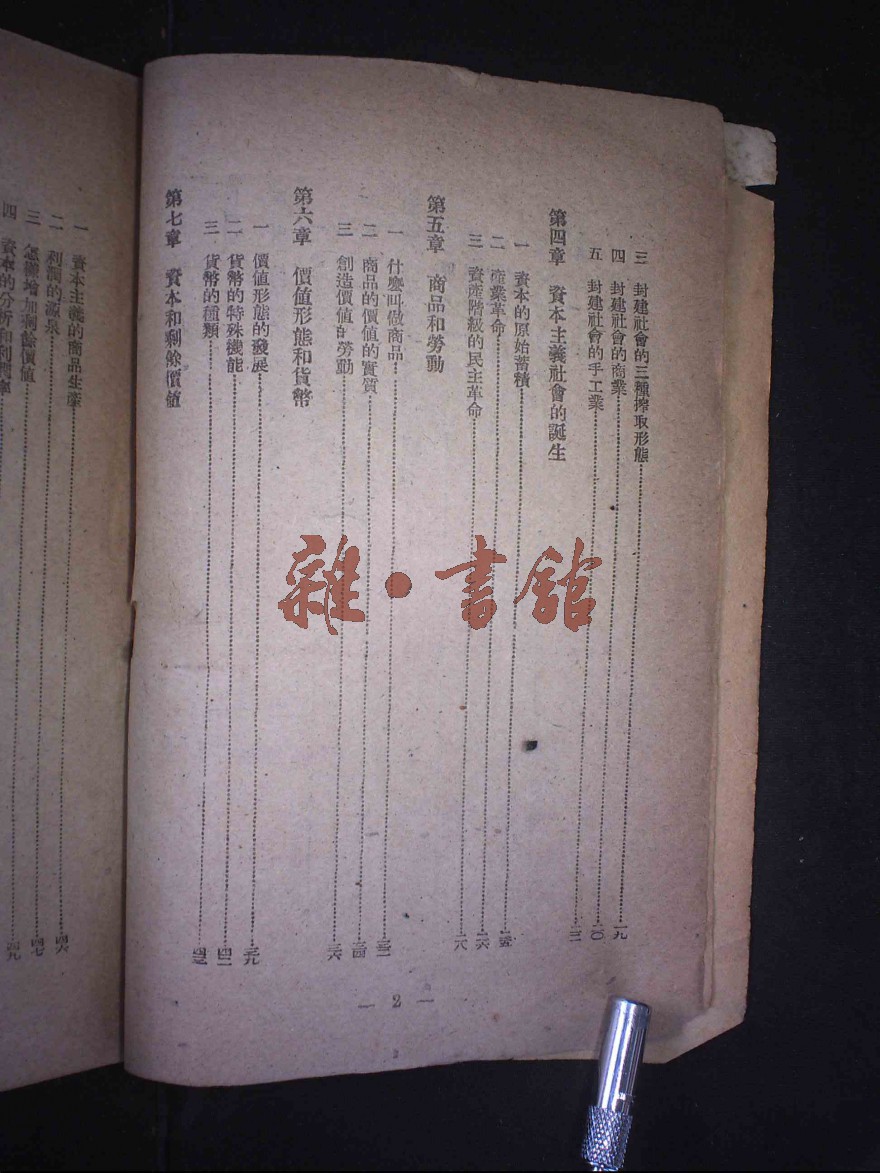 三 封建社會的三種搾取形態……一九
四 封建社會的商業……二〇
五 封建社會的手工業……二二
第四章 資本主義社會的誕生
一 資本的原始蓄積……二五
二 產業革命……二六
三 資產階級的民主革命……二八
第五章 商品和勞動
一 什麼叫做商品……三二
二 商品的價值的實質……三四
三 創造價值的勞動……三六
第六章 價值形態和貨幣
一 價值形態的發展……三九
二 貨幣的特殊機能……四二
三 貨幣的種類……
第七章 資本和剩餘價值
— 2 —
2
一 資本主義的商品生產
二 利潤的源泉……四六
三 怎樣增加剩餘價值……四七
四 資本的分析和利潤率……四九
雜·書館